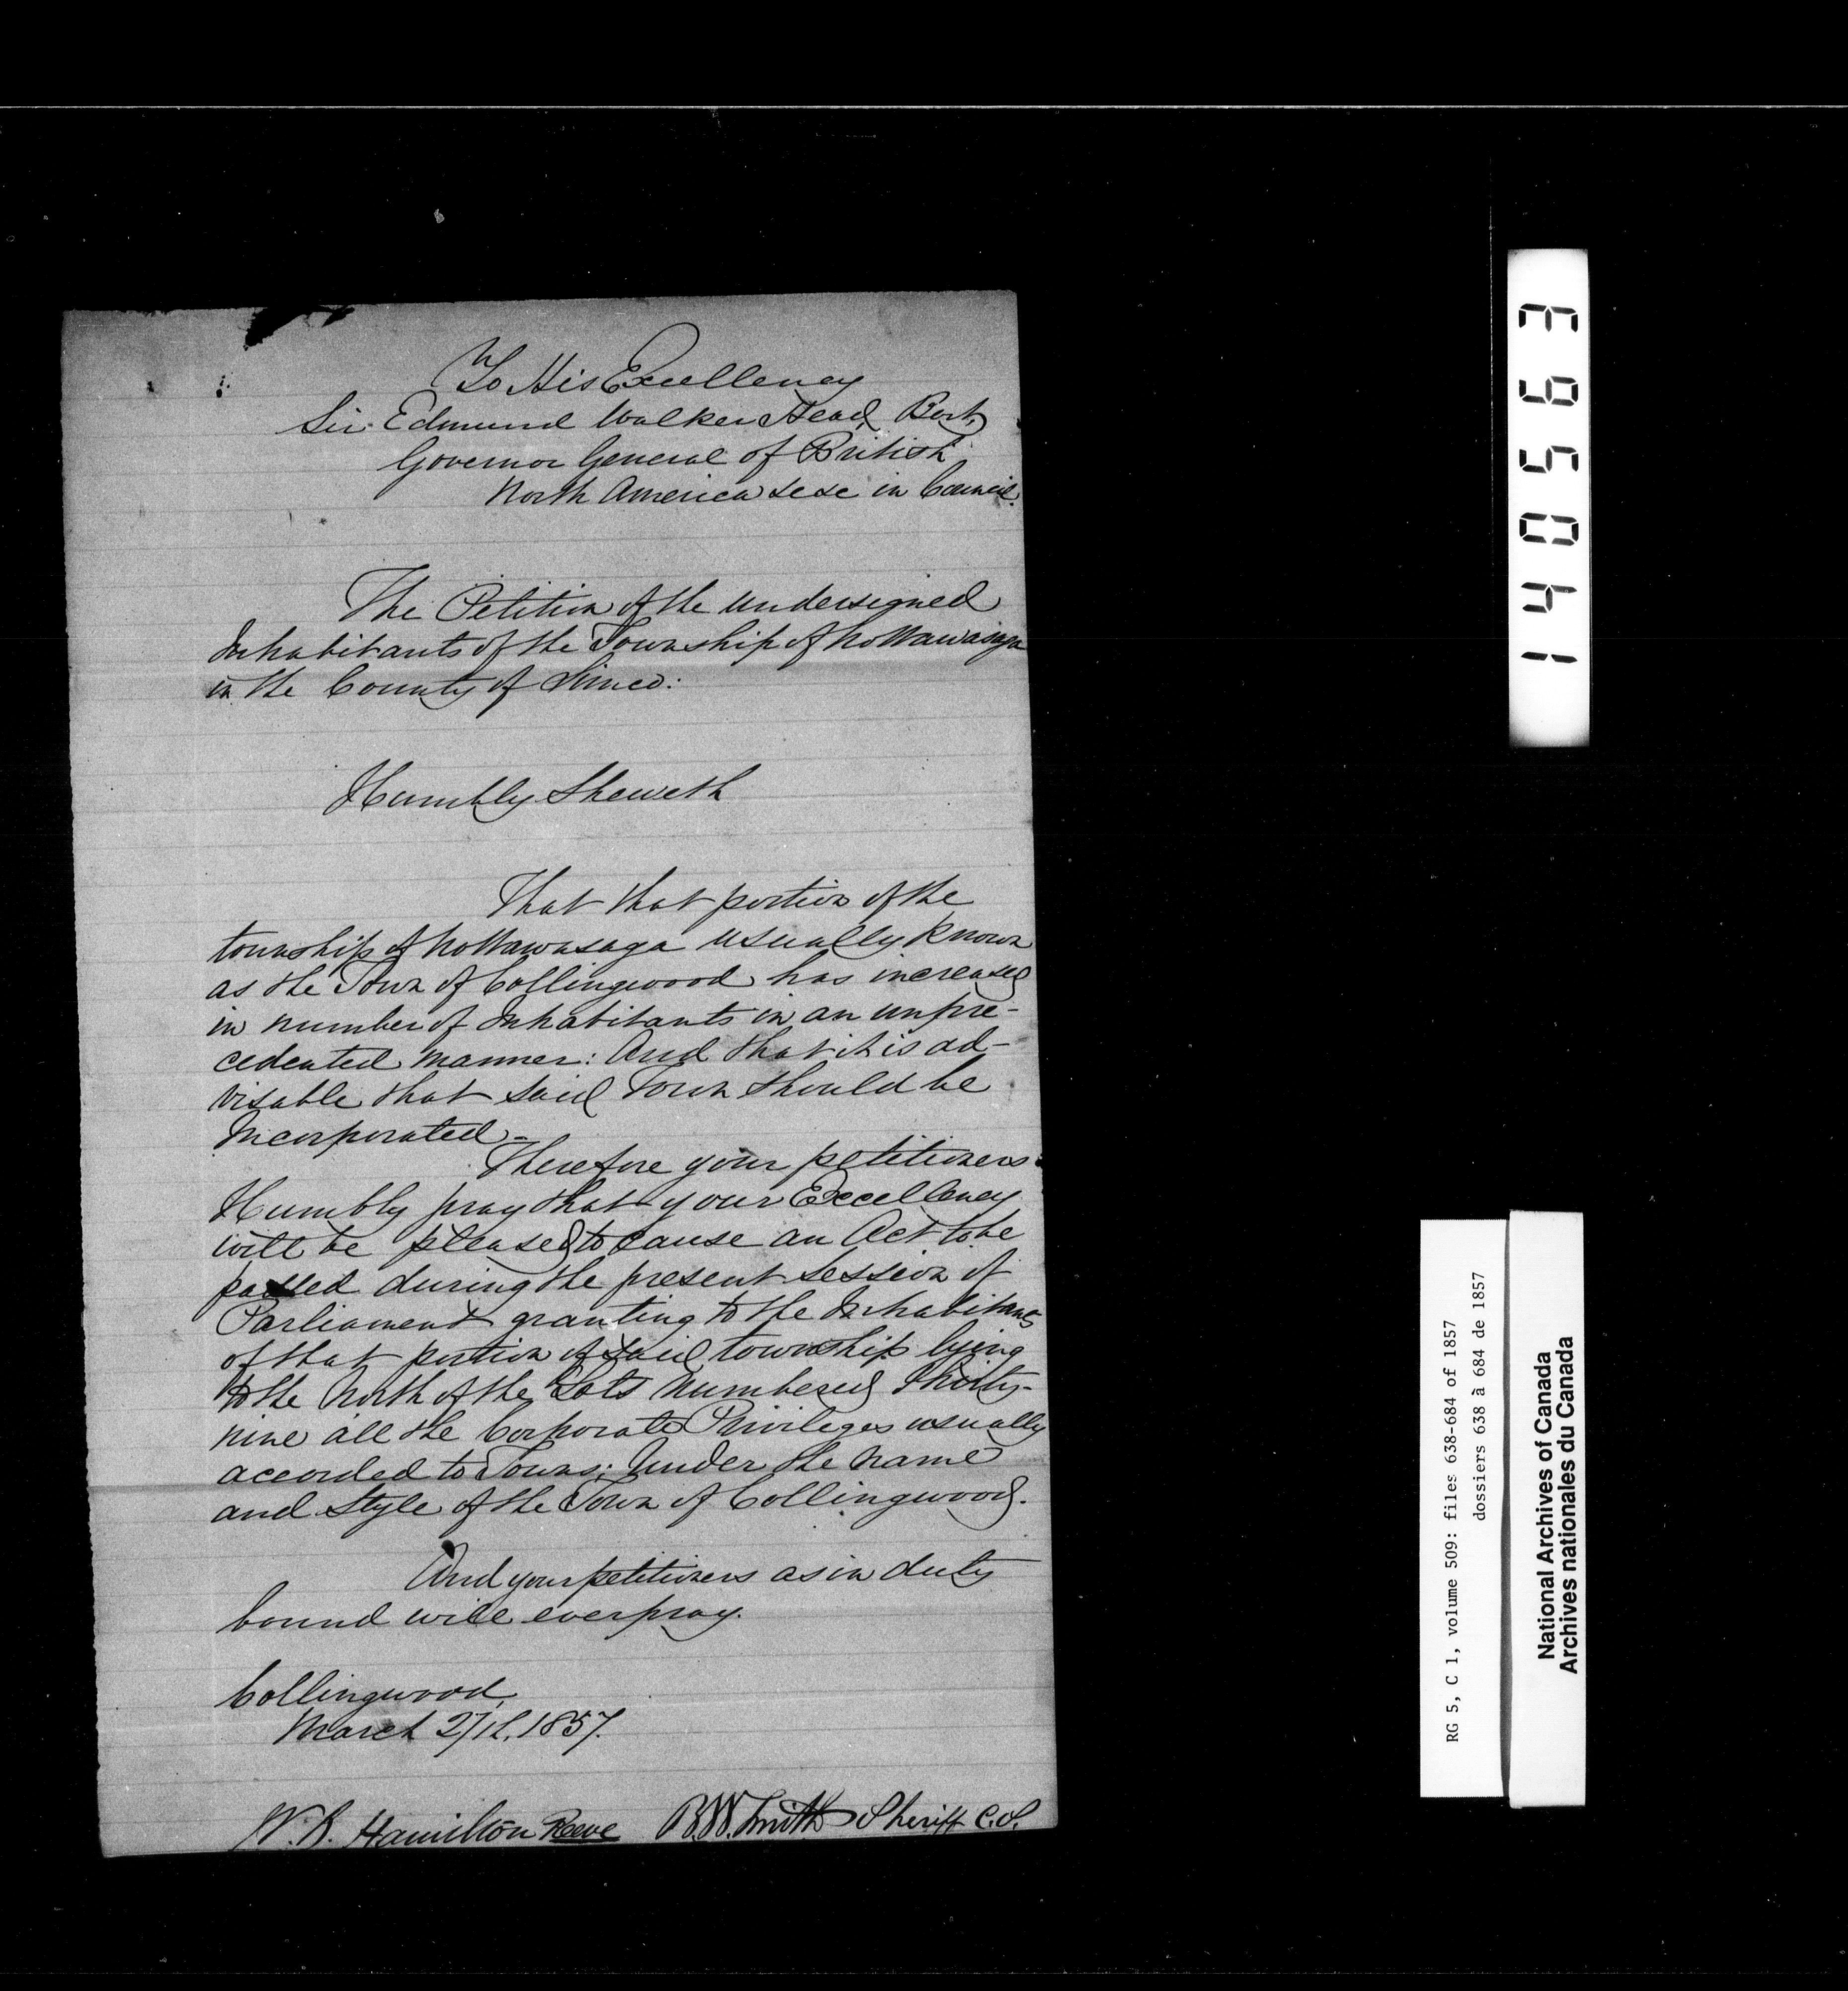 To His Excellency
Sir Edmund Walker Head, Bart,
Governor General of British
North America &c &c in Council.
The Petition of the undersigned
Inhabitants of the Township of Nottawasaga
in the County of Simcoe:
Humbly Sheweth
That that portion of the
township of Nottawasaga usually known
as the Town of Collingwood has increased
in number of Inhabitants in an unpre-
cedented manner: And that it is ad-
visable that said Town should be
Incorporated-
Therefore your petitioners
Humbly pray that your Excellency
will be pleased to cause an Act to be
passed during the present session of
Parliament granting to the Inhabitants
of that portion of said township lying
to the North of the Lots numbered Thirty-
nine all the Corporate Privileges usually
accorded to Towns; Under the name
and Style of the Town of Collingwood.
And your petitioners as in duty
bound will ever pray.
Collingwood,
March 27th, 1857.
Hamilton Reeve B.W. Smith Sheriff C.S.
140563
RG 5, C 1, volume 509: files 638-684 of 1857
dossiers 638 à 684 de 1857
National Archives of Canada
Archives nationales du Canada